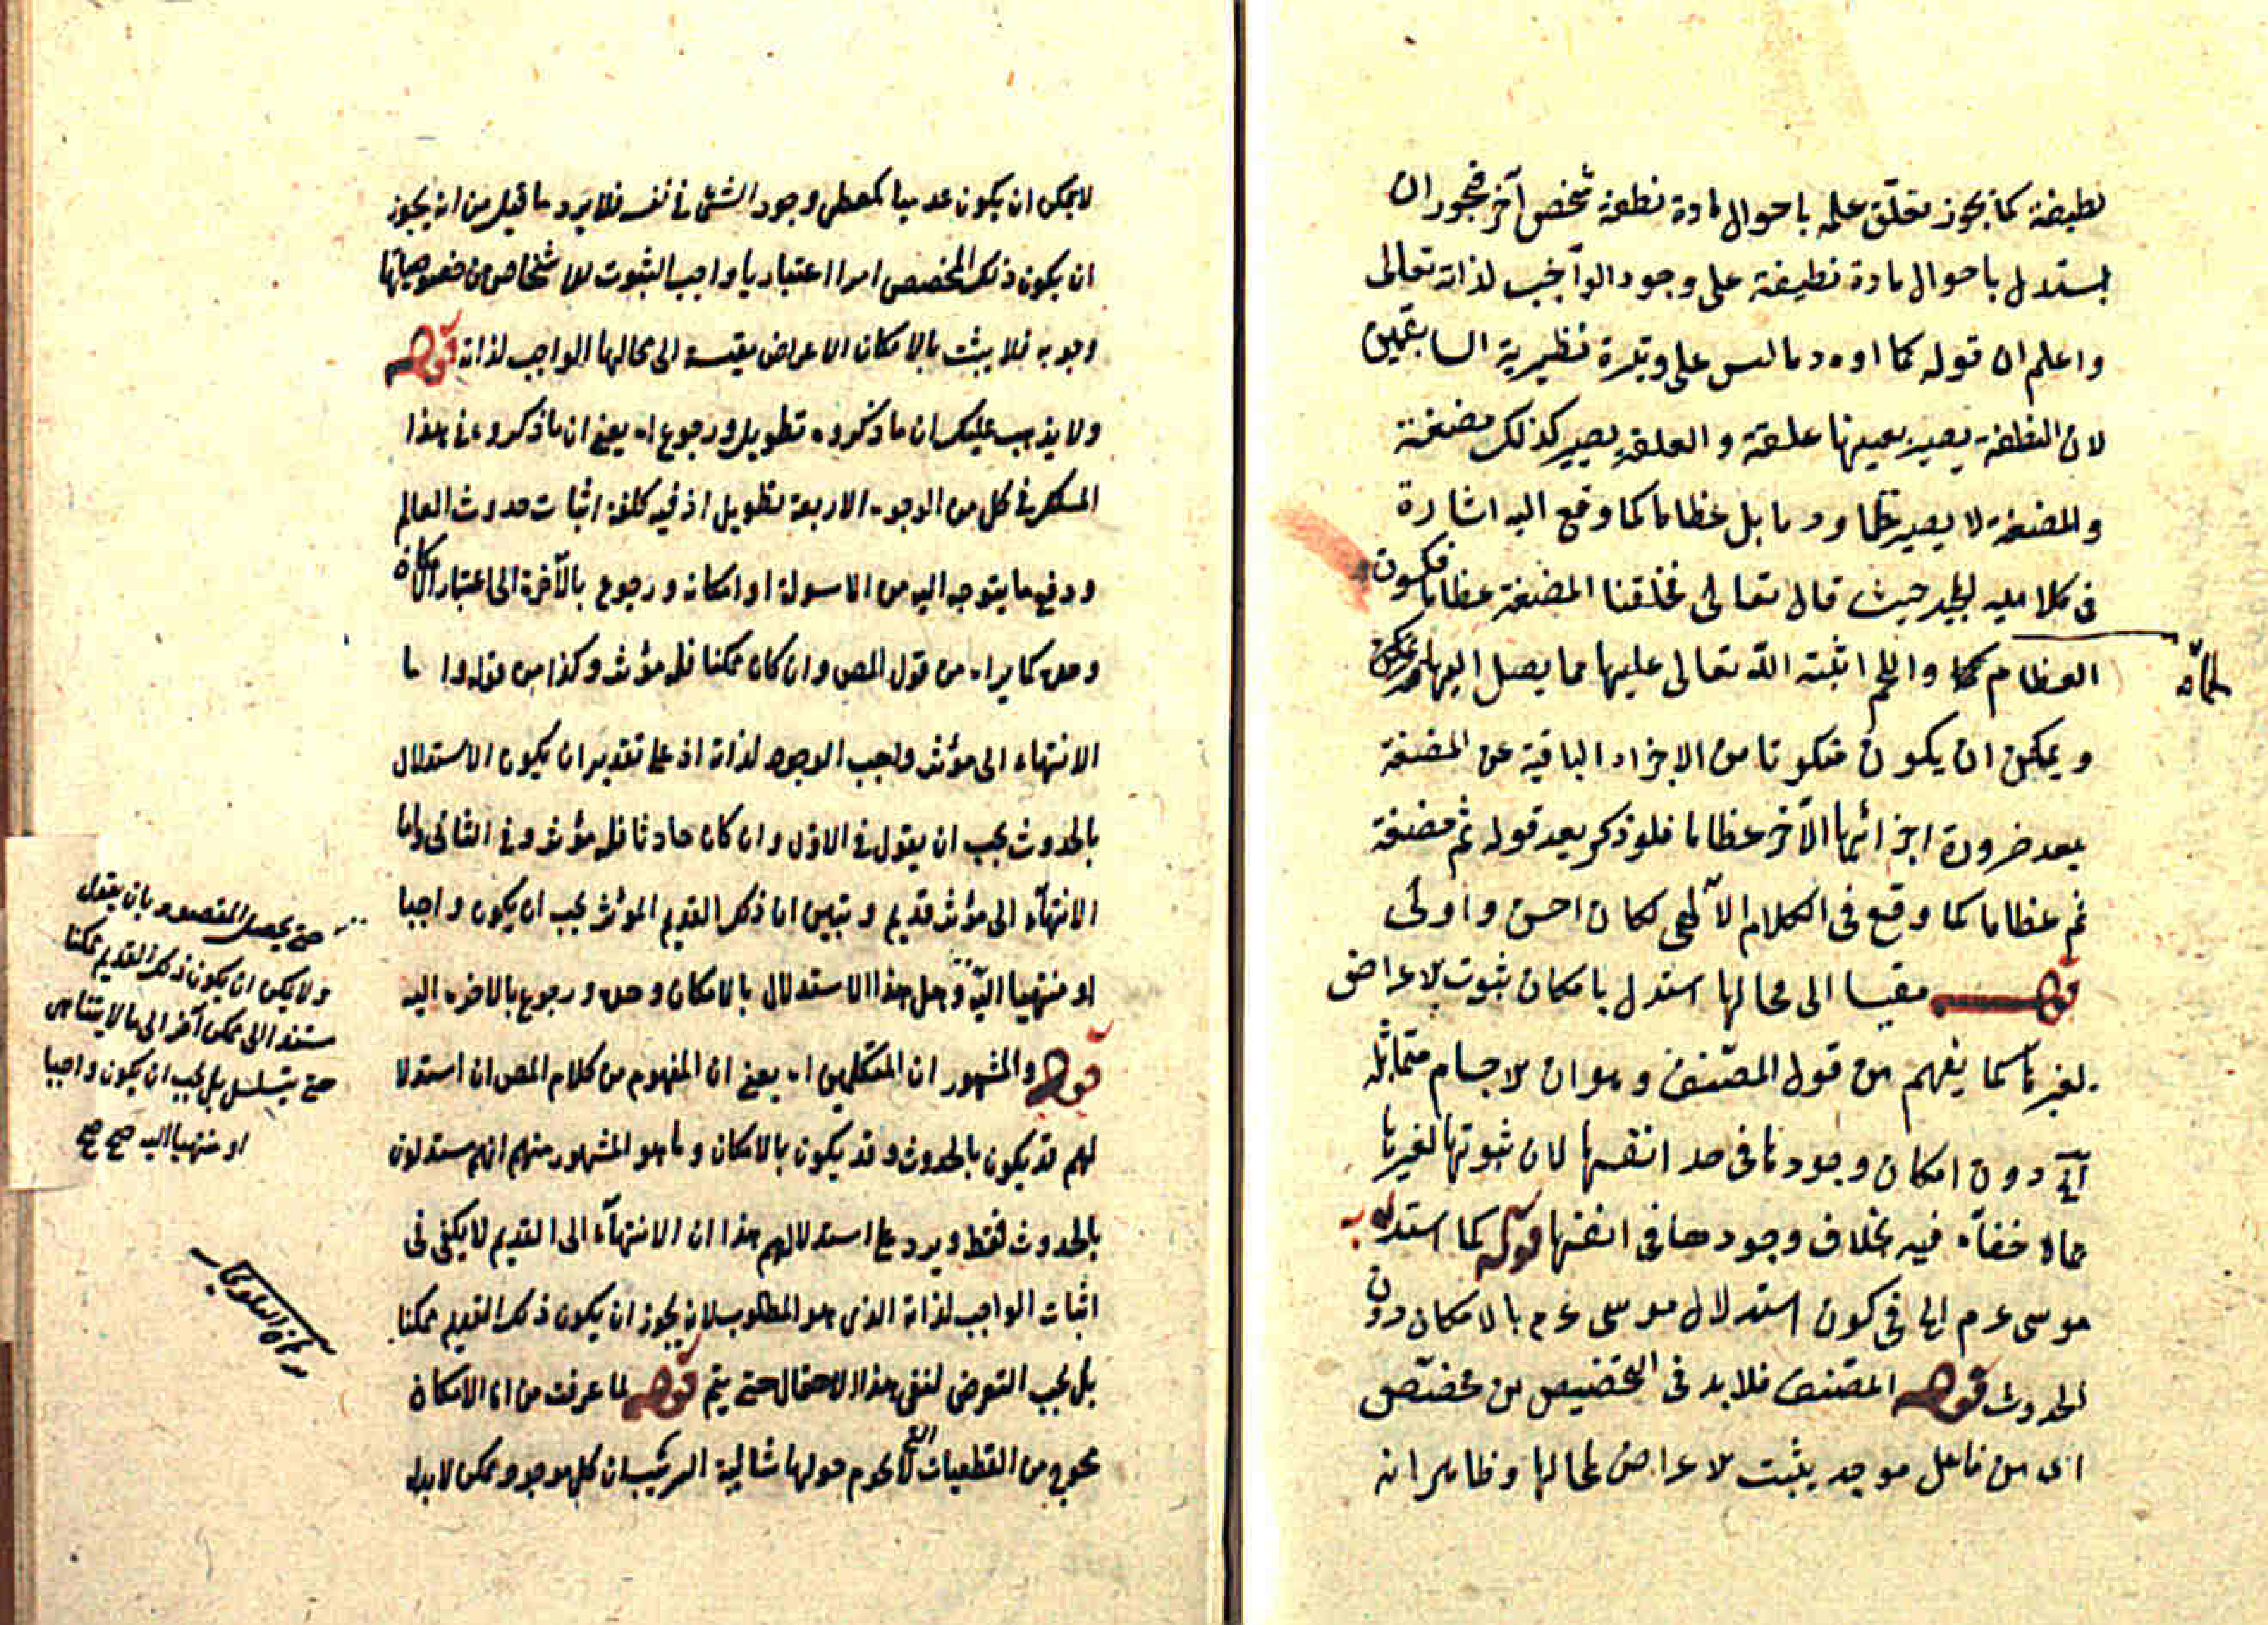 نطيفة كما يجوز تعلّق علمه باحوال مادة نطفة شخص آخر فيجوز ان
يستدل باحوال مادة نطيفة على وجود الواجب لذاته تعالى
واعلم ان قوله كما اوه دما ليس على وتيرة نظيرية السابقين
لان النطفة يصير بعينها علقة والعلقة يصير كذلك مضغة
والمضغة لا يصير لحما ودما بل عظاما كما وقع اليه اشارة
فى كلامه المجيد حيث قال تعالى فخلقنا المضغة عظاما فكسونا
العظام لحما واللحم انبته الله تعالى عليها مما يصل اليها
لحماً
ويمكن ان يكون متكونا من الاجزاء الباقية عن المضغة
بعد ضرورة اجزائها الآخر عظاما فلو ذكر بعد قوله ثم مضغة
ثم عظاما كما وقع فى الكلام الآلهى لكان احسن واولى
قوله مقيسا الى محالها استدل بامكان ثبوت الاعراض
لغيرها كما يفهم من قول المصنف وهو ان الاجسام متماثلة
آلخ دون امكان وجودها فى حد انفسها لان ثبوتها لغيرها
مما لا خفآء فيه بخلاف وجودها فى انفسها قوله كما استدل به
موسى عم اى فى كون استدلال موسى عم بالامكان دون
الحدوث قوله المصنف فلا بد فى التخصيص من مخصّص
اى من فاعل موجد يثبت الاعراض لمحالها وظاهر انه
لا يمكن ان يكون عدميا كمعطى وجود الشئ فى نفسه فلا يرد ما قيل من انه يجوز
ان يكون ذلك المخصص امرا اعتباريا واجب الثبوت للاشخاص من خصوصياتها
وجوبه فلا يثبت بالامكان الاعراض مقيسة الى محالها الواجب لذاته قوله
ولا يذهب عليك ان ما ذكروه تطويل ورجوع اه يعنى ان ما ذكروه فى هذا
المسلك فى كل من الوجوه الاربعة تطويل اذ فيه كلفة اثبات حدوث العالم
ودفع ما يتوجه اليه من الاسولة او امكانه ورجوع بالآخرة الى اعتبار الامكان
وحده كما يراه من قول المص وان كان ممكنا فله مؤثر وكذا من قوله واما
الانتهاء الى مؤثر واجب الوجود لذاته اذ على تقدير ان يكون الاستدلال
بالحدوث يجب ان يقول فى الاوّل وان كان حادثا فله مؤثر وفى الثانى واما
الانتهآء الى مؤثر قديم وتبين ان ذلك القديم المؤثر يجب ان يكون واجبا
او منتهيا اليه وهل هذا الا استدلال بالامكان وحده ورجوع بالاخره اليه
قوله والمشهور ان المتكلمين اه يعنى ان المفهوم من كلام المص ان استدلا
لهم قد يكون بالحدوث وقد يكون بالامكان وما هو المشهور منهم انهم مستدلون
بالحدوث فقط ويرد على استدلالهم هذا ان الانتهآء الى القديم لا يكفى فى
اثبات الواجب لذاته الذى هو المطلوب لانه يجوز ان يكون ذلك القديم ممكنا
بل يجب التعرض لنفى هذا الاحتمال حتى يتم قوله لما عرفت من ان الامكان
محوج من القطعيات التى لا يحوم حولها شائبة الريب ان كل موجود ممكن لا بد له
حتى يحصل المقصود بان يقول
ولا يمكن ان يكون ذلك القديم ممكنا
مستندا الى ممكن آخر الى ما لا يتناهى
حتى يتسلسل بل يجب ان يكون واجبا
او منتهيا اليه صح صح